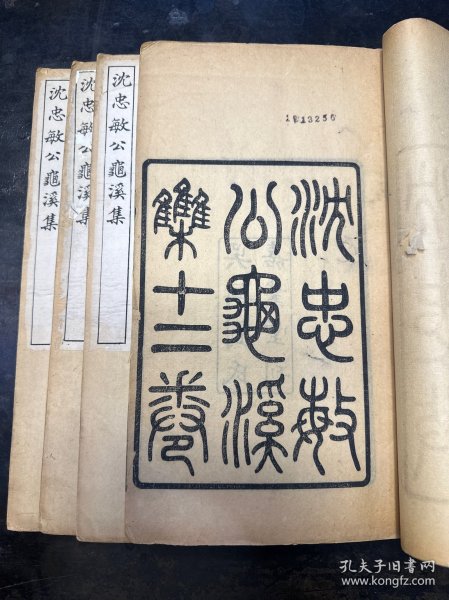 沈忠敏公龜溪集
沈忠敏公龜溪集
沈忠敏公龜溪集
1913256
沈忠敏
公龜溪
集十二卷
孔夫子旧书网
www.kongfz.com